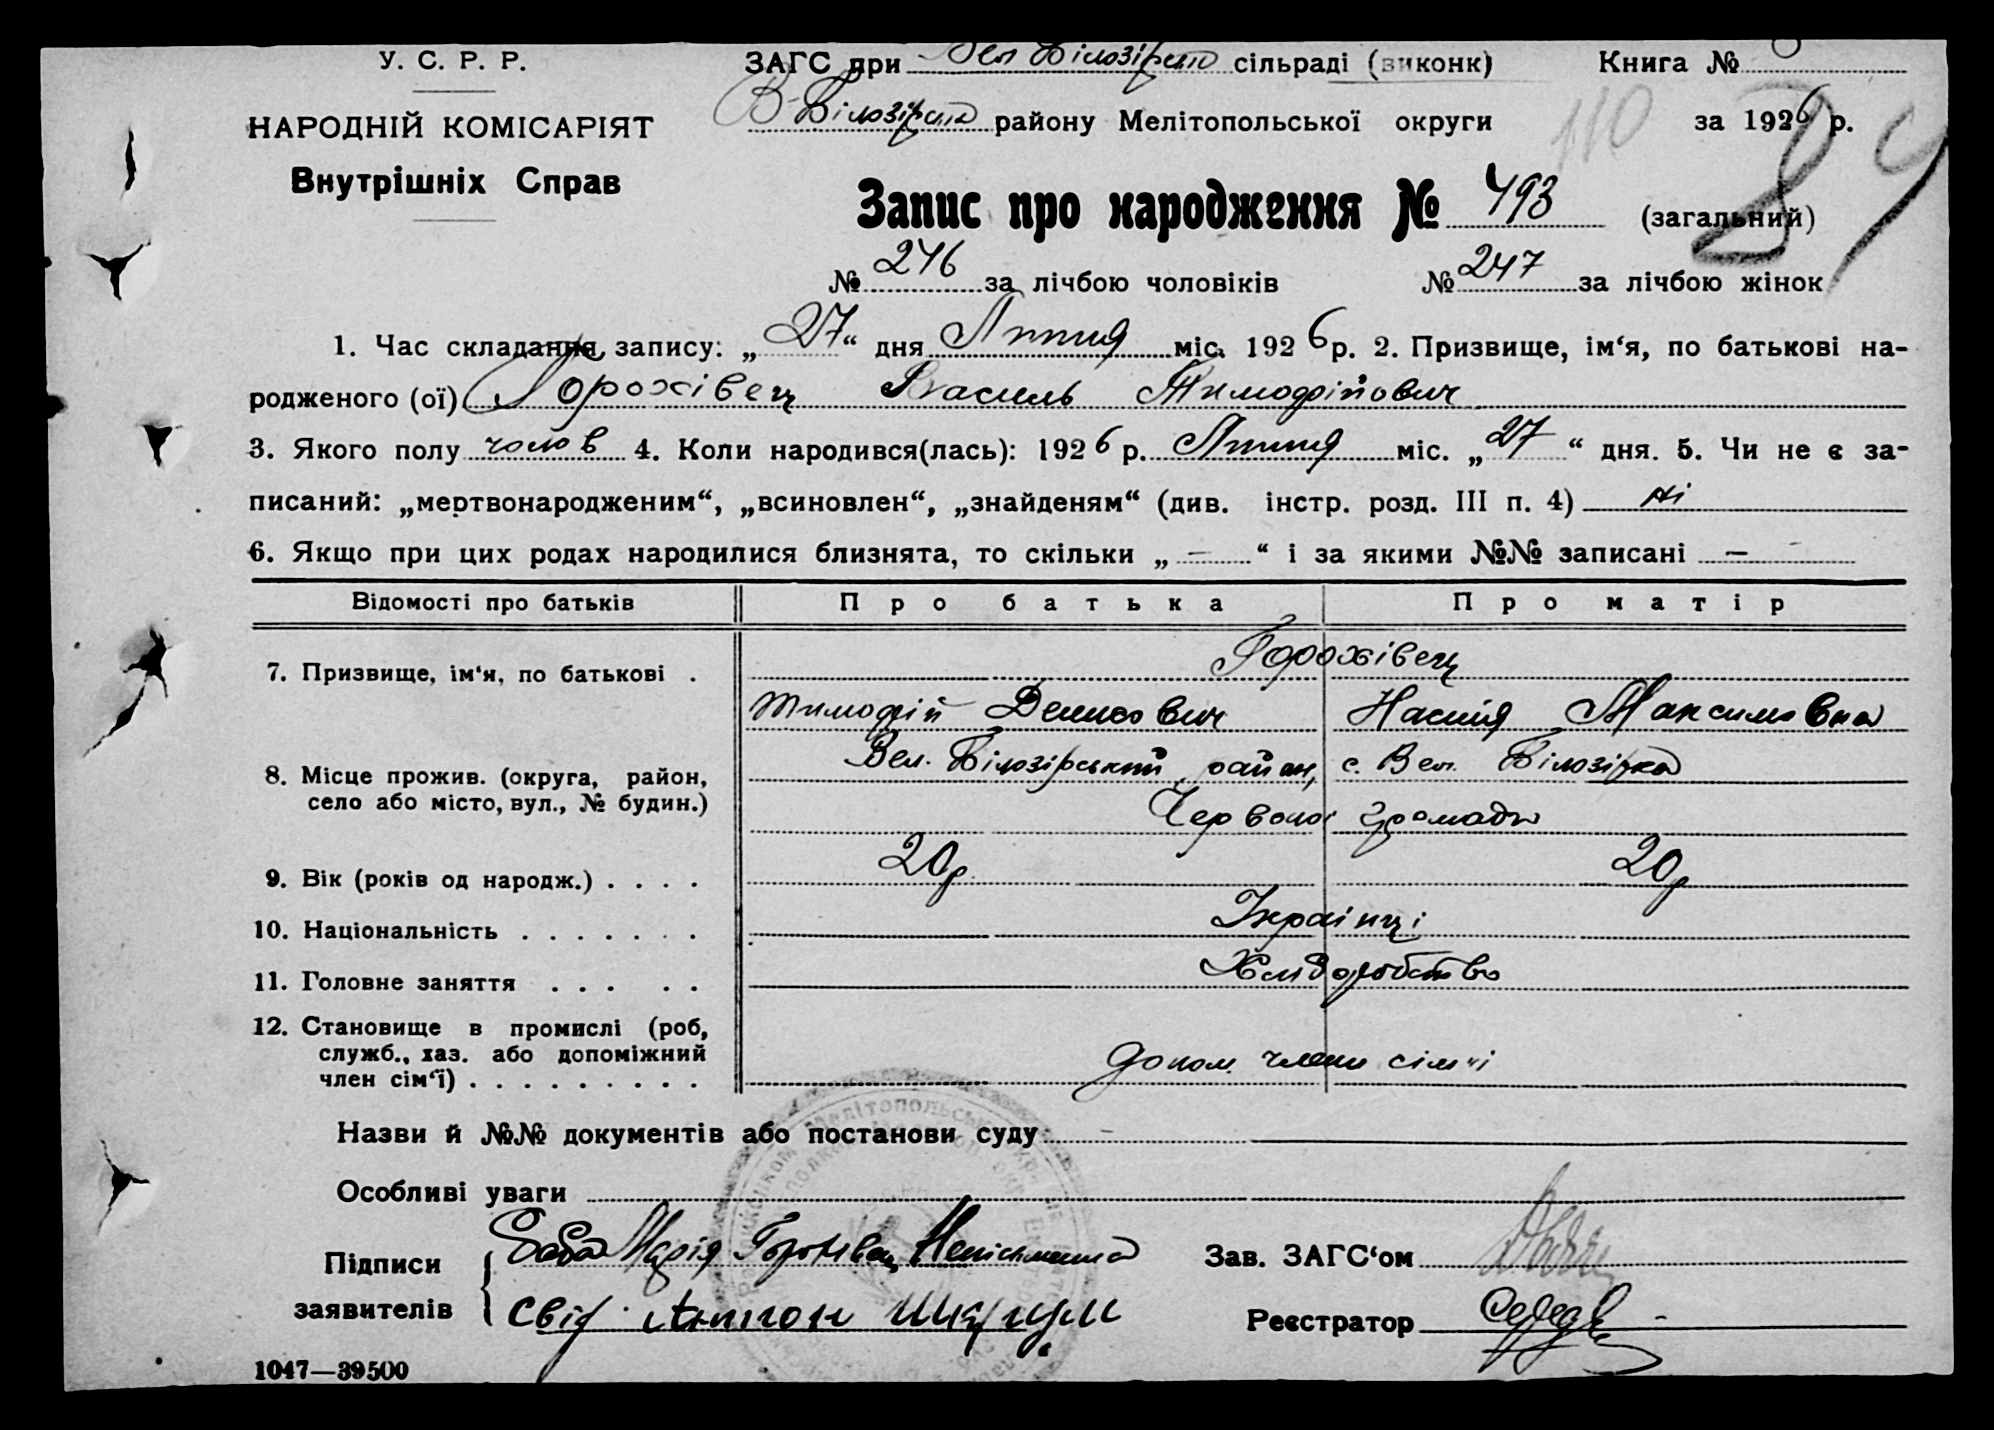 У. С. Р. Р.
НАРОДНІЙ КОМІСАРІЯТ
Внутрішніх Справ
ЗАГС при Вел Білозірськ сільраді (виконк) Книга №
В-Білозірськ району Мелітопольської округи за 1926 р.
110
84
Запис про народження № 493 (загальний)
№ 246 за лічбою чоловіків № 247 за лічбою жінок
1. Час складання запису: „27“ дня Липня міс. 1926 р. 2. Призвище, ім‘я, по батькові на-
родженого (ої) Горохівець Василь Тимофійович
3. Якого полу чолов 4. Коли народився(лась): 1926 р. Липня міс. „27“ дня. 5. Чи не є за-
писаний: „мертвонародженим“, „всиновлен“, „знайденям“ (див. інстр. розд. III п. 4) ні
6. Якщо при цих родах народилися близнята, то скільки „ — “ і за якими №№ записані —
Відомості про батьків Про батька Про матір
7. Призвище, ім‘я, по батькові . Горохівец
Тимофій Денисович Настя Максимовна
8. Місце прожив. (округа, район, село або місто, вул., № будин.) Вел. Білозірський район, с. Вел. Білозірка
Червоної громади
9. Вік (років од народж.) . . . . 20 р 20 р
10. Національність . . . . . . . Українці
11. Головне заняття . . . . . Хліборобство
12. Становище в промислі (роб,
служб., хаз. або допоміжний
член сім‘ї) . . . . . . . . . допом. члени сімʼі
Назви й №№ документів або постанови суду —
Особливі уваги
Підписи заявителів { Баба Марія Горохівец Неписьменна
Свід. Антон
Зав. ЗАГС‘ом
Реєстратор
1047—39500